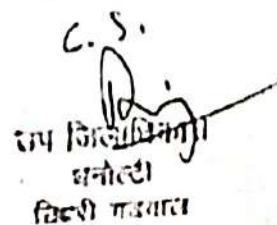 C. S.
उप जिलाधिकारी
धनोल्टी
टिहरी गढवाल